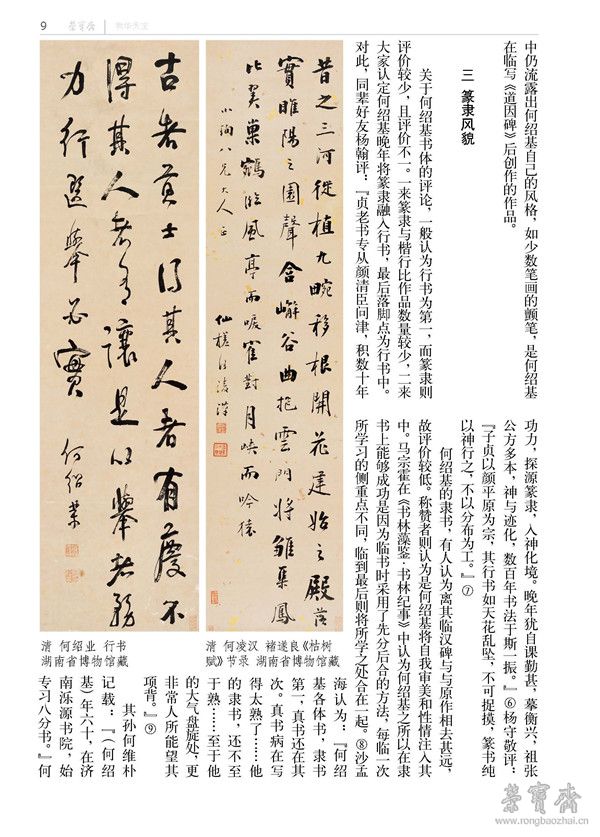 9
荣宝斋
物华天宝
中仍流露出何绍基自己的风格，如少数笔画的颤笔，是何绍基
在临写《道因碑》后创作的作品。
三 篆隶风貌
关于何绍基书体的评论，一般认为行书为第一，而篆隶则
评价较少，且评价不一。一来篆隶与楷行比作品数量较少，二来
大家认定何绍基晚年将篆隶融入行书，最后落脚点为行书中。
对此，同辈好友杨翰评：『贞老书专从颜清臣问津，积数十年
昔之三河徙植九畹移根開花建始之殿落
實睢陽之園聲含嶰谷曲抱雲門將雛集鳳
比翼巢臨風亭而唳寉對月峡而吟猿
八兄大人正
仙槎何凌漢
古者貢士得其人者有慶不
得其人者有讓是以舉者務
力行選舉必實
何紹業
功力，探源篆隶，入神化境。晚年犹自课勤甚，摹衡兴，祖张
公方多本，神与迹化，数百年书法于斯一振。』⑥杨守敬评：
『子贞以颜平原为宗，其行书如天花乱坠，不可捉摸，篆书纯
以神行之，不以分布为工。』⑦
何绍基的隶书，有人认为离其临汉碑与与原作相去甚远，
故评价较低。称赞者则认为是何绍基将自我审美和性情注入其
中。马宗霍在《书林藻鉴·书林纪事》中认为何绍基之所以在隶
书上能够成功是因为临书时采用了先分后合的方法，每临一次
所学习的侧重点不同，临到最后则将所学之处合在一起。⑧沙孟
海认为：『何绍
基各体书，隶书
第一，真书还在其
次。真书病在写
得太熟了……他
的隶书，还不至
于熟……至于他
的大气盘旋处，更
非常人所能望其
项背。』⑨
其孙何维朴
记载：『（何绍
基）年六十，在济
南泺源书院，始
专习八分书。』何
清 何凌汉 褚遂良《枯树
赋》节录 湖南省博物馆藏
清 何绍业 行书
湖南省博物馆藏
荣宝斋
www.rongbaozhai.cn